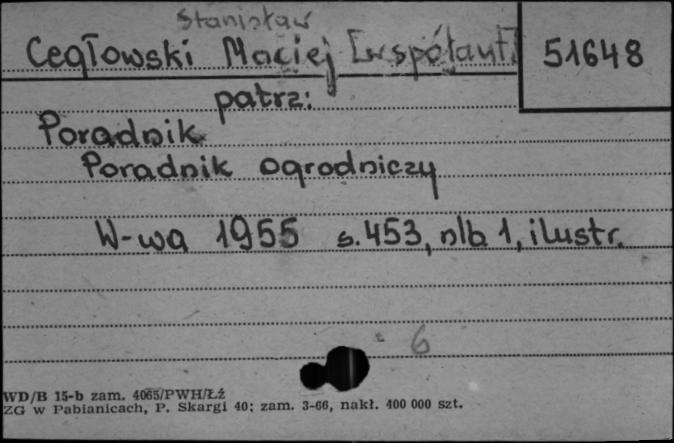 Stanisław
Cegłowski Maciej [współaut.] 51648
patrz:
Poradnik
Poradnik ogrodniczy
W-wa 1955 s. 453, nlb 1, ilustr.
6
WD/B 15-b zam. 4065/PWH/Łź
ZG w Pabianicach, P. Skargi 40; zam. 3-66, nakł. 400 000 szt.